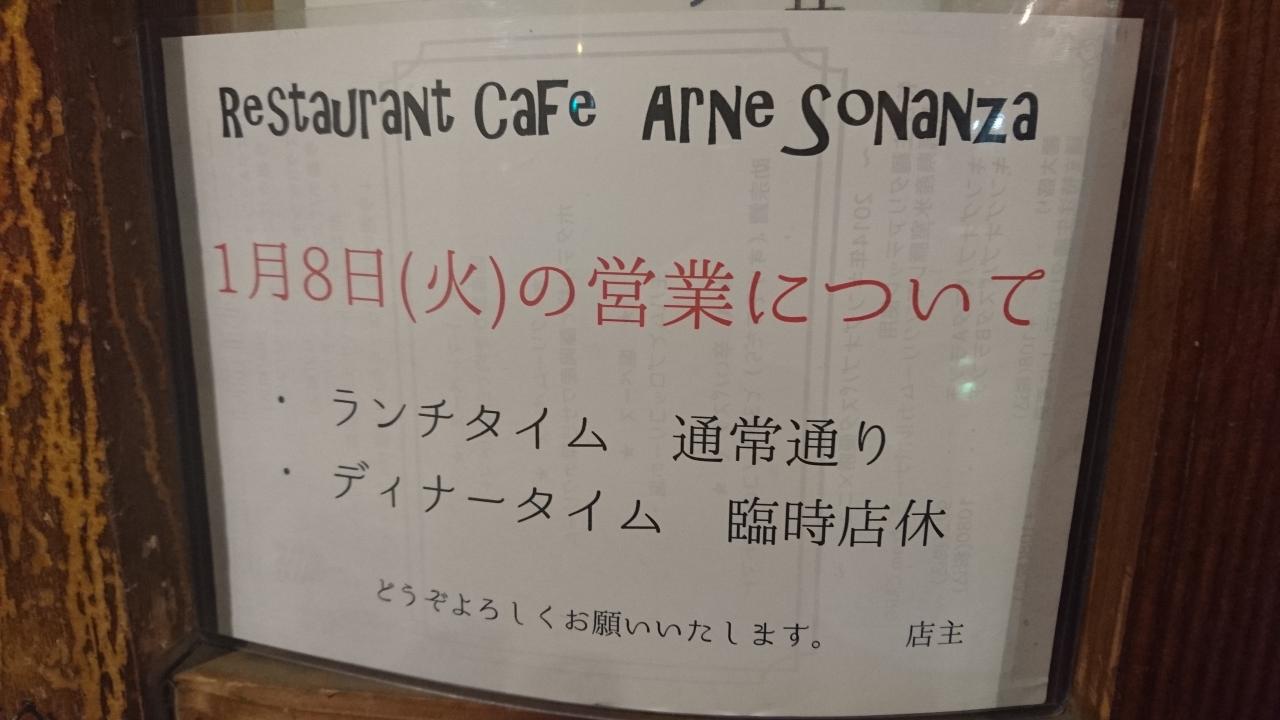 Restaurant Cafe Arne Sonanza
1月8日(火)の営業について
・ ランチタイム 通常通り
・ ディナータイム 臨時店休
どうぞよろしくお願いいたします。 店主